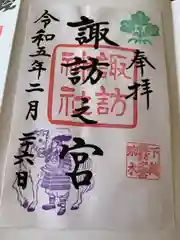 奉拝
諏訪之宮
諏訪
神社
令和五年二月
二十六日